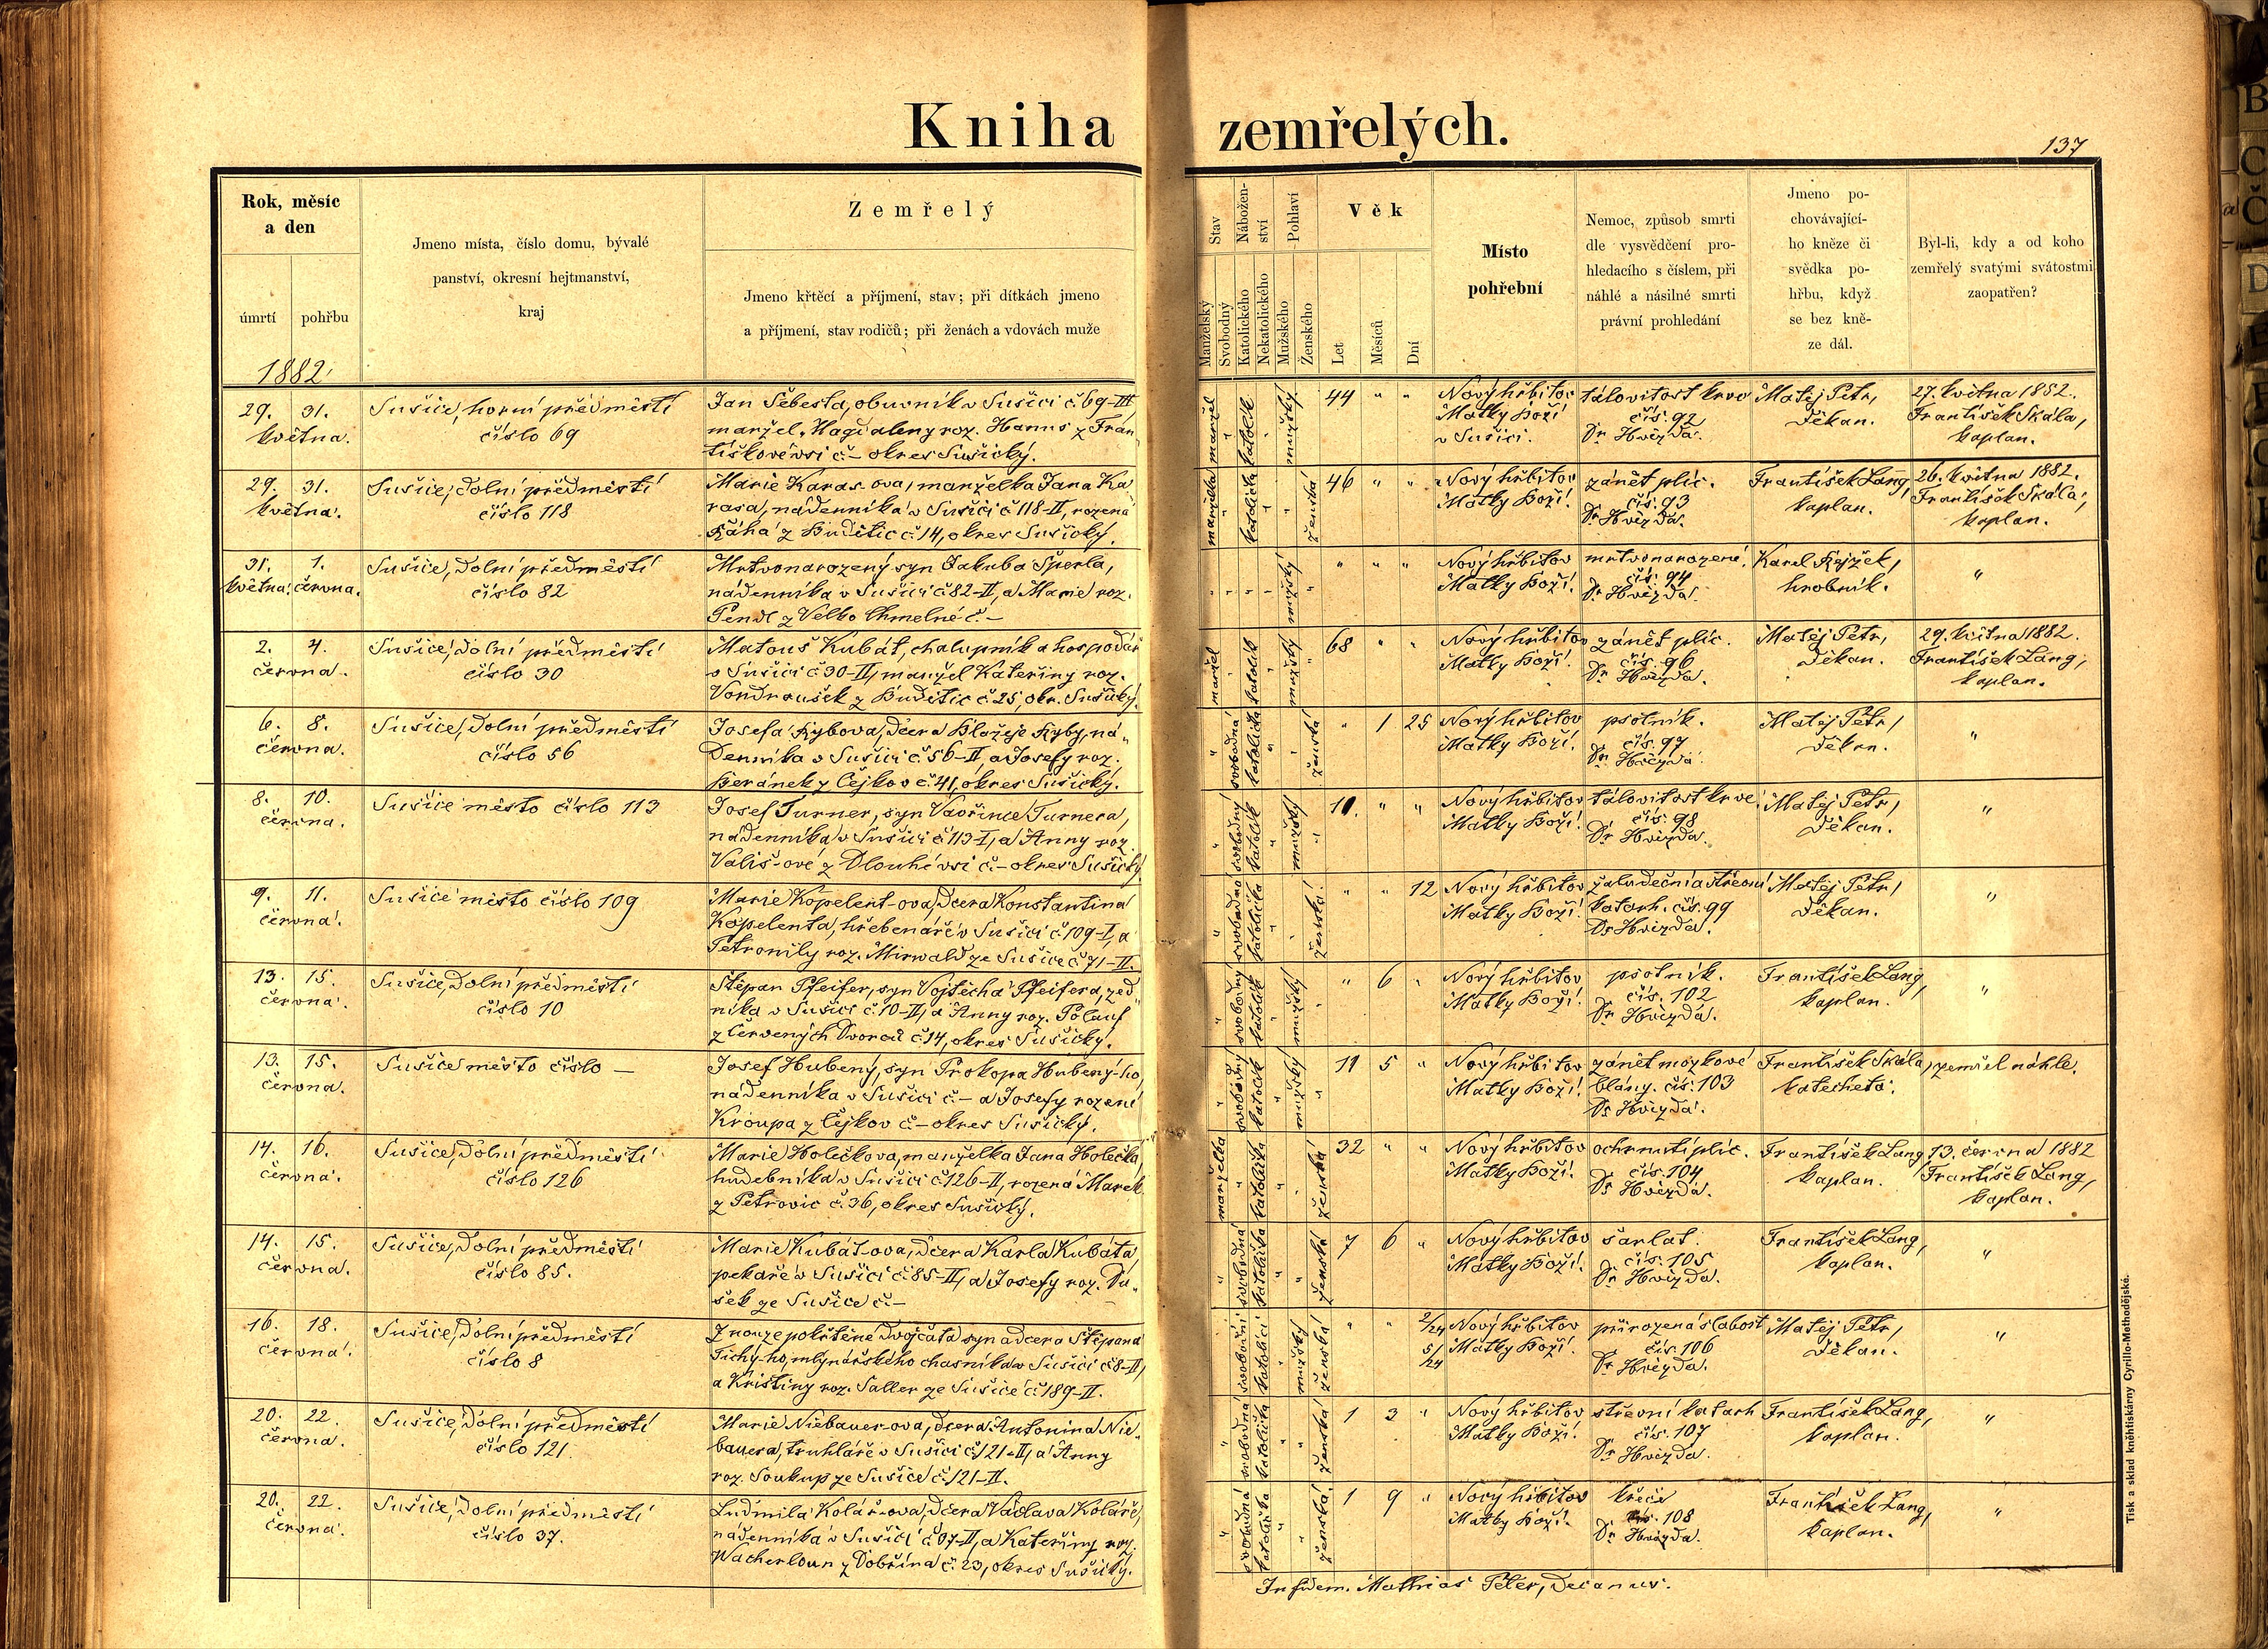 Kniha zemřelých.
137
Rok, měsíc
a den
úmrtí
pohřbu
1882
Jmeno místa, číslo domu, bývalé
panství, okresní hejtmanství,
kraj
Zemřelý
Jmeno křtěcí a příjmení, stav; při dítkách jmeno
a příjmení, stav rodičů; při ženách a vdovách muže
Stav
Manželský
Svobodný
Nábožen-
ství
Katolického
Nekatolického
Pohlaví
Mužského
Ženského
Věk
Let
Měsíců
Dní
Místo
pohřební
Nemoc, způsob smrti
dle vysvědčení pro-
hledacího s číslem, při
náhlé a násilné smrti
právní prohledání
Jmeno po-
chovávající-
ho kněze či
svědka po-
hřbu, když
se bez kně-
ze dál.
Byl-li, kdy a od koho
zemřelý svatými svátostmi
zaopatřen?
29. 31.
května.
Sušice, horní předměstí
číslo 69
Jan Šebesta, obuvník v Sušici č. 69-III
manžel Magdaleny roz. Hanus z Fran
tiškové vsi č. – okres Sušický.
manžel
katolík
mužský
44 " "
Nový hřbitov
Matky Boží
v Sušici.
čís. 92
Dr. Hvězda.
Matěj Petr,
děkan.
27. května 1882.
František Skála,
kaplan.
29. 31.
května.
Sušice, dolní předměstí
číslo 118
Marie Karas-ova, manželka Jana Ka
rasa, nádenníka v Sušici č. 118-II, rozená
z Budětic č. 14, okres Sušický.
manželka
katolička
ženská
46 " "
Nový hřbitov
Matky Boží.
zánět plic.
čís. 93
Dr. Hvězda.
František Lang,
kaplan.
26. května 1882.
František Skála,
kaplan.
31. 1.
května. června.
Sušice, dolní předměstí
číslo 82
Mrtvonarozený syn Jakuba Šperla,
nádenníka v Sušici č. 82-II, a Marie roz.
z Velko Chmelné č. –
mužský
" " "
Nový hřbitov
Matky Boží.
mrtvonarozené.
čís. 94
Dr. Hvězda.
Karel
hrobník.
"
2. 4.
června.
Sušice, dolní předměstí
číslo 30
Matouš Kubát, chalupník a hospodář
v Sušici č. 30-II, manžel Kateřiny roz.
Vondroušek z Budětic č. 25, okr. Sušický.
manžel
katolík
mužský
68 " "
Nový hřbitov
Matky Boží.
zánět plic.
čís. 96
Dr. Hvězda.
Matěj Petr,
děkan.
29. května 1882.
František Lang,
kaplan.
6. 8.
června.
Sušice, dolní předměstí
číslo 56
Josefa Rybova, dcera Blažeje Ryby, ná-
denníka v Sušici č. 56-II, a Josefy roz.
Beránek z Čejkov č. 41, okres Sušický.
svobodná
katolička
ženská
" 1 25
Nový hřbitov
Matky Boží.
psotník.
čís. 97
Dr. Hvězda.
Matěj Petr,
děkan.
"
8. 10.
června.
Sušice město číslo 113
Josef Turner, syn Vavřince Turnera,
nádenníka v Sušici č. 113-I, a Anny roz.
Vališ-ové z Dlouhé vsi č. – okres Sušický
svobodný
katolík
mužský
11. " "
Nový hřbitov
Matky Boží.
čís. 98
Dr. Hvězda.
Matěj Petr,
děkan.
"
9. 11.
června.
Sušice město číslo 109
Marie Kopelent-ova, dcera Konstantina
Kopelenta, hřebenáře v Sušici č. 109-I, a
Petronily roz. Mirwald ze Sušice č. 71-II.
svobodná
katolička
ženská.
" " 12
Nový hřbitov
Matky Boží.
žaludeční a střevní
katarh. čís. 99
Dr. Hvězda.
Matěj Petr,
děkan.
"
13. 15.
června.
Sušice, dolní předměstí
číslo 10
Štěpan Pfeifer, syn Vojtěcha Pfeifera, zed
níka v Sušici č. 10-II, a Anny roz. Polauf
z Červených Dvorců č. 14, okres Sušický.
svobodný
katolík
mužský
" 6 "
Nový hřbitov
Matky Boží.
psotník.
čís. 102
Dr. Hvězda.
František Lang,
kaplan.
"
13. 15.
června.
Sušice město číslo –
Josef Hubený, syn Prokopa Hubený-ho,
nádenníka v Sušici č. – a Josefy rozené
Kroupa z Čejkov č. – okres Sušický.
svobodný
katolík
mužský
11 5 "
Nový hřbitov
Matky Boží.
zánět mozkové
blány. čís. 103
Dr. Hvězda.
František Skála,
katecheta.
zemřel náhle.
14. 16.
června.
Sušice, dolní předměstí
číslo 126
Marie Holečkova, manželka Jana Holečka,
hudebníka v Sušici č. 126-II, rozená Marek
z Petrovic č. 36, okres Sušický.
manželka
katolička
ženská
32 " "
Nový hřbitov
Matky Boží.
ochrnutí plic.
čís. 104
Dr. Hvězda.
František Lang
kaplan.
13. června 1882
František Lang,
kaplan.
14. 15.
června.
Sušice, dolní předměstí
číslo 85.
Marie Kubát-ova, dcera Karla Kubáta,
pekaře v Sušici č. 85-II, a Josefy roz. Du-
šek ze Sušice č. –
svobodná
katolička
ženská
7 6 "
Nový hřbitov
Matky Boží.
šarlat.
čís. 105
Dr. Hvězda.
František Lang,
kaplan.
"
16. 18.
června.
Sušice, dolní předměstí
číslo 8
Z nouze pokřtěné dvojčata syn a dcera Štěpana
Tichý-ho, mlynářského chasníka v Sušici č. 8-II,
a Kristiny roz. Saller ze Sušice č. 189-II.
svobodní
katolíci
mužský
ženská
" " 2/24
5/24
Nový hřbitov
Matky Boží.
přirozená slabost
čís. 106
Dr. Hvězda.
Matěj Petr,
děkan.
"
20. 22.
června.
Sušice, dolní předměstí
číslo 121.
Marie Niebauer-ova, dcera Antonína Nie-
bauera, truhláře v Sušici č. 121-II, a Anny
roz. Soukup ze Sušice č. 121-II.
svobodná
katolička
ženská
1 3 "
Nový hřbitov
Matky Boží.
střevní katarh
čís. 107
Dr. Hvězda.
František Lang,
kaplan.
"
20. 22.
června.
Sušice, dolní předměstí
číslo 37.
Ludmila Kolář-ova, dcera Václava Koláře,
nádenníka v Sušici č. 37-II, a Kateřiny roz.
z Dobřína č. 23, okres Sušický.
svobodná
katolička
ženská
1 9 "
Nový hřbitov
Matky Boží.
křeče
čís. 108
Dr. Hvězda.
František Lang,
kaplan.
"
In fidem. Mathias Peter, Decanus.
Tisk a sklad knihtiskárny Cyrillo-Methodějské.